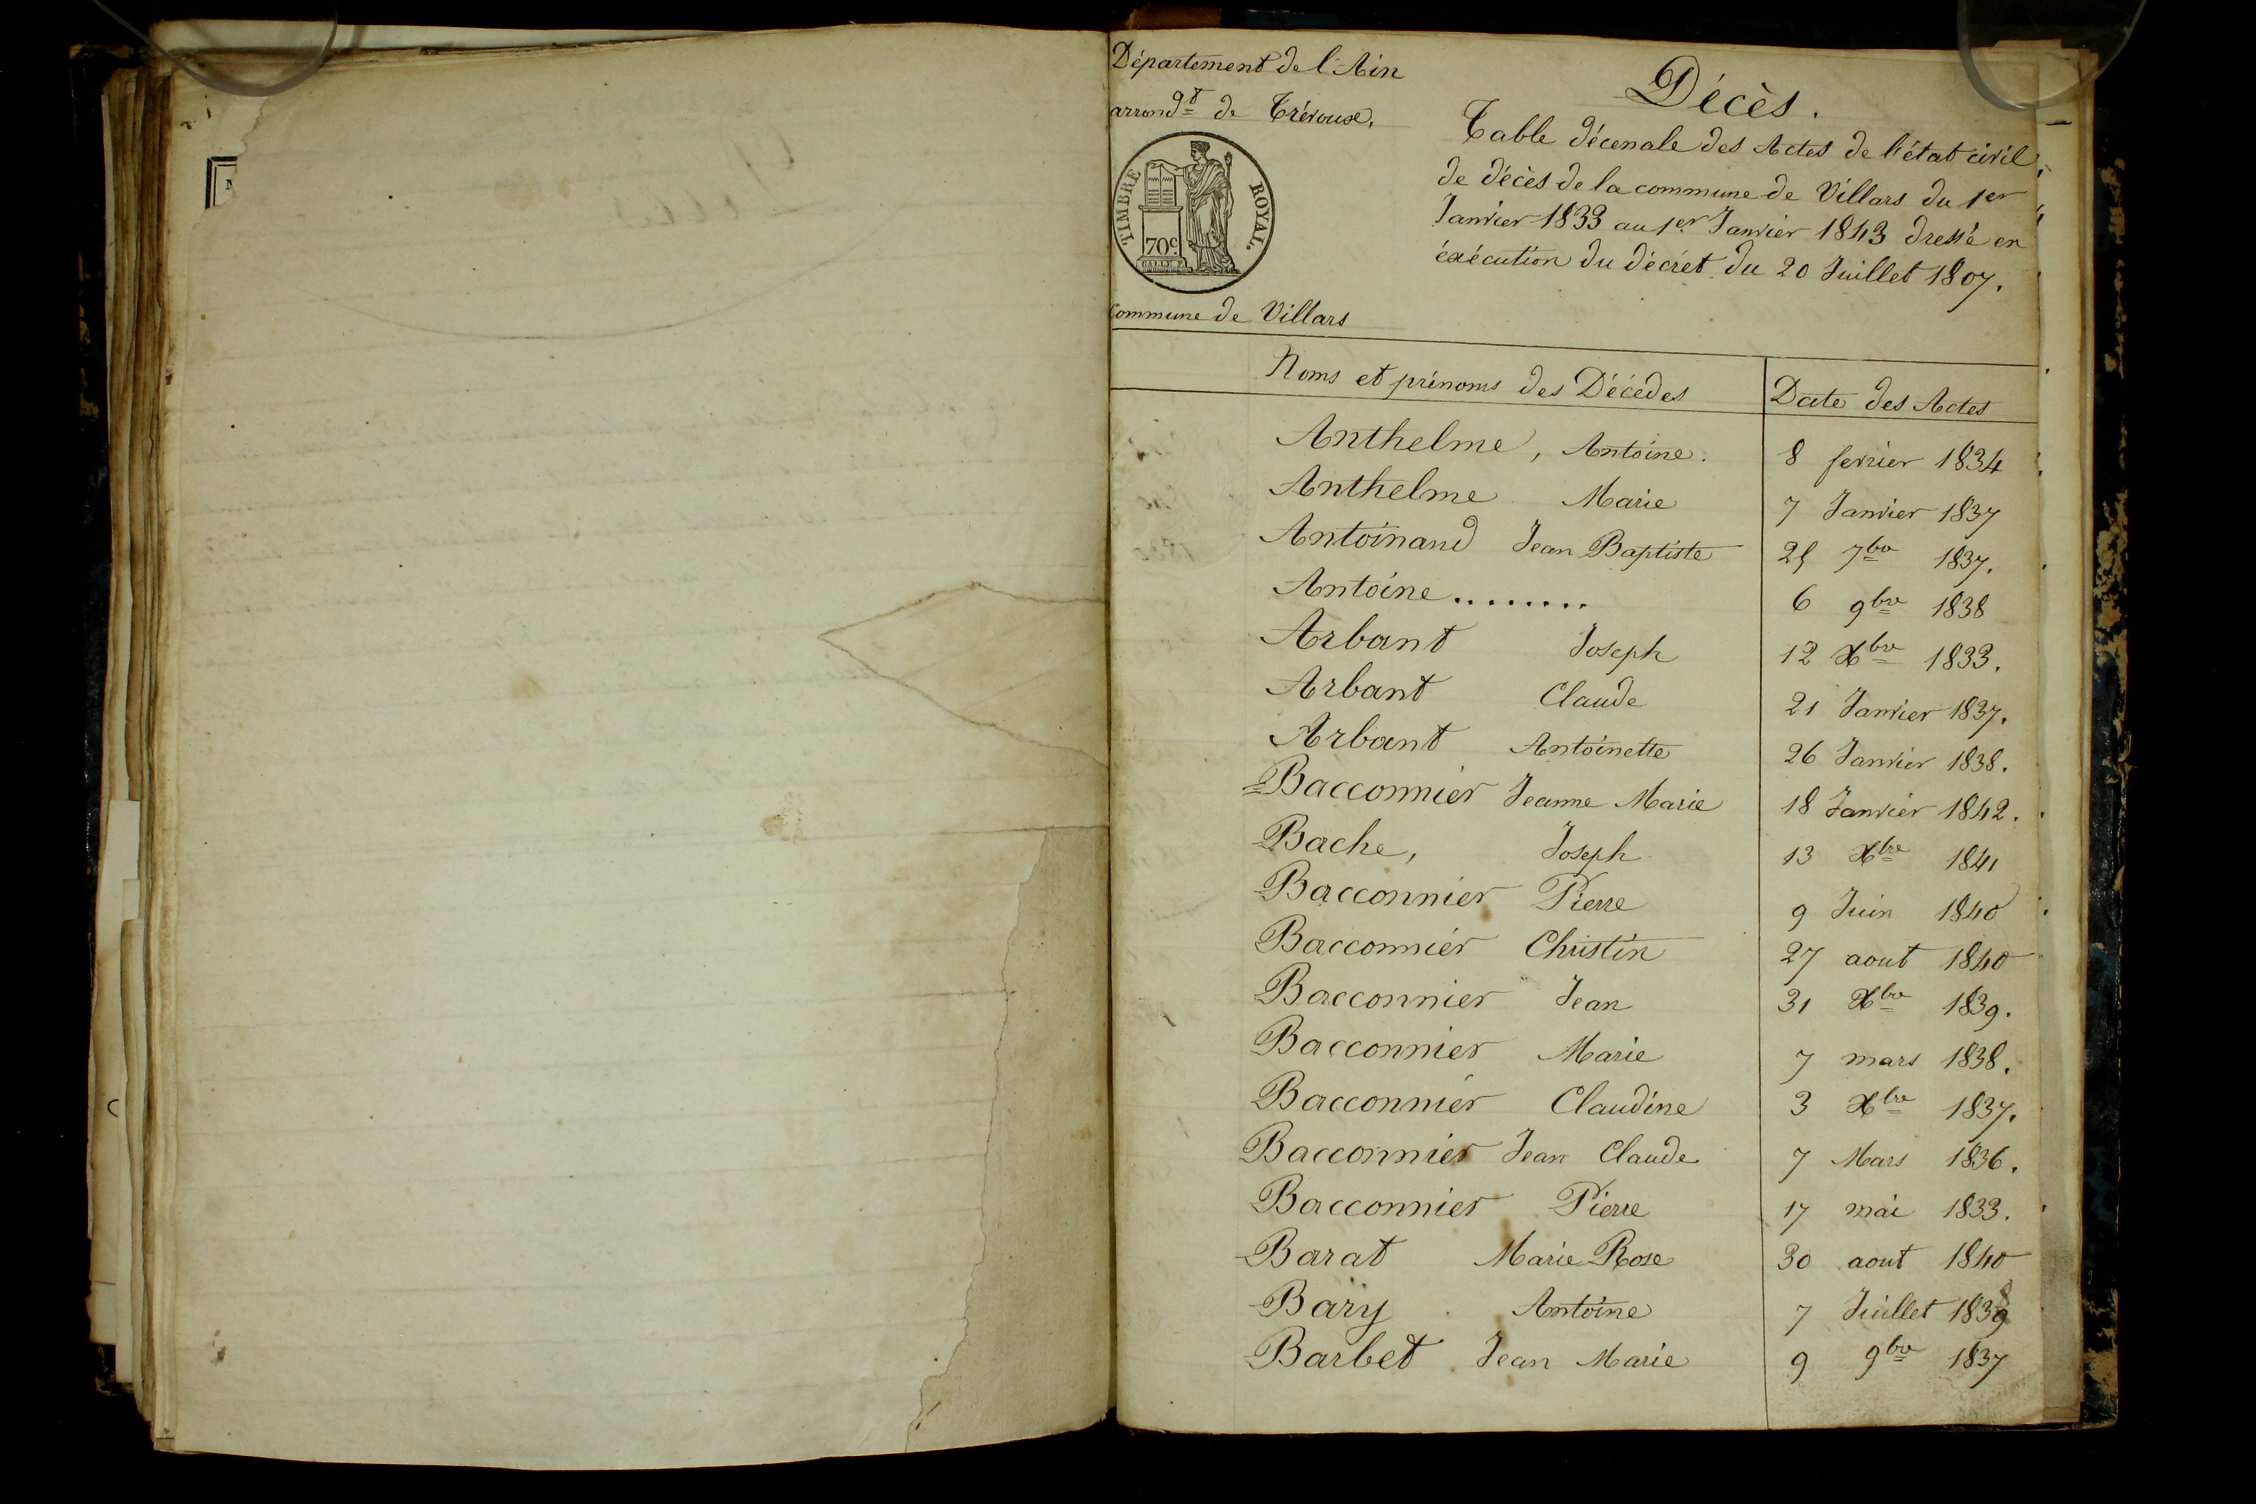 Département de l'Ain
arrond^t de Trévoux.
TIMBRE ROYAL.
70c
Commune de Villars
Décès.
Table décenale des Actes de l'état civil
de décès de la commune de Villars du 1er
Janvier 1833 au 1er Janvier 1843 dressé en
éxécution du décret du 20 Juillet 1807.
Noms et prénoms des Décédes Date des Actes
Anthelme, Antoine. 8 fevrier 1834
Anthelme Marie 7 Janvier 1837
Antoinand Jean Baptiste 25 7bre 1837.
Antoine........ 6 9bre 1838
Arbant Joseph 12 Xbre 1833.
Arbant Claude 21 Janvier 1837.
Arbant Antoinette 26 Janvier 1838.
Bacconnier Jeanne Marie 18 Janvier 1842.
Bache, Joseph 13 Xbre 1841
Bacconnier Pierre 9 Juin 1840
Bacconnier Christin 27 aout 1840
Bacconnier Jean 31 Xbre 1839.
Bacconnier Marie 7 mars 1838.
Bacconnier Claudine 3 Xbre 1837.
Bacconnier Jean Claude 7 Mars 1836.
Bacconnier Pierre 17 mai 1833.
Barat Marie Rose 30 aout 1840
Bary Antoine 7 Juillet
Barbet Jean Marie 9 9bre 1837